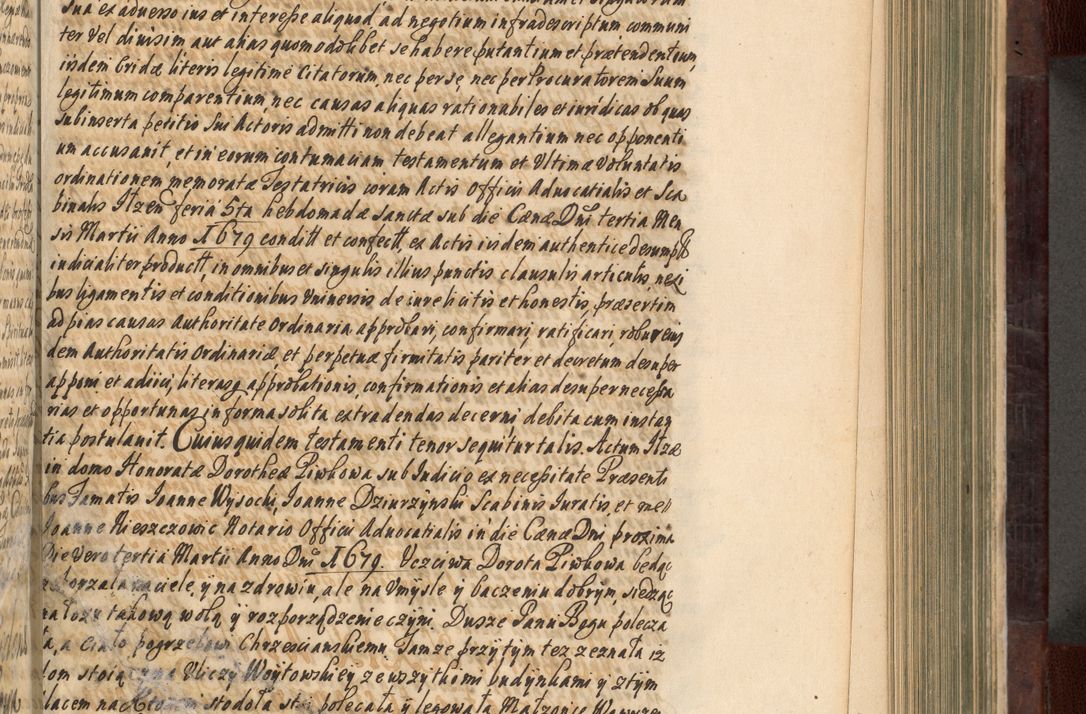 sua ex adverso ius et interesse aliquod ad negotium infradescriptum communi
ter vel divisim aut alias quomodolibet se habere putantium et prætendentium,
iisdem Cridæ literis legitimè Citatorum, nec per se, nec per Procuratorem suum
legitimum comparentium nec causas aliquas rationabiles et iuridicas ob quas
subinserta petitio sui Actoris admitti non debeat allegantium nec opponenti
um accusavit et in eorum contumaciam testamentum et Ultimæ Voluntatis
ordinationem memoratæ Testatricis coram Actis Officii Advocatialis et Sca
binalis Ilzen feria 5ta hebdomadæ sanctæ sub die Cænæ Dni tertia Men
sis Martii Anno 1679 condit et confect, ex Actis iisdem authentice desumpt
iudicialiter product, in omnibus et singulis illius punctis clausulis articulis, nexi
bus ligamentis et conditionibus Universis de iure licitis et honestis, præsertim
ad pias causas Authoritate Ordinaria approbari, confirmari, ratificari, robur eius
dem Authoritatis Ordinariæ et perpetuæ firmitatis pariter et decretum desuper
apponi et adiici, literasq approbationis, confirmationis et alias desuper necessa
rias et opportunas in forma solita extradendas decerni debita cum instan
tia postulavit. Cuius quidem testamenti tenor sequitur talis. Actum Ilzæ
in domo Honoratæ Dorotheæ Piwkowa sub Iudicio ex necessitate Præsenti
bus Famatis Ioanne Wysocki, Ioanne Dziurzynski Scabinis Iuratis, et me
Ioanne Notario Officii Advocatialis in die Cænæ Dni proxima
Die Vero tertia Martii Anno Dni 1679. Uczciwa Dorota Piwkowa będąc
na ciele, y na zdrowiu, ale na Umysle y baczeniu dobrym, siedząc
na łozu takową wolą y rozporządzenie czyni. Dusze Panu Bogu poleca
ła, a Ciało pogrzebowi Chrzescianskiemu. Tamze przytym tez zeznała iz
dom stoiący na Uliczy Woytowskiey ze wszytkimi budynkami y ztym
placem na Ktorym stodoła stoi polecała y legowała Małzonce